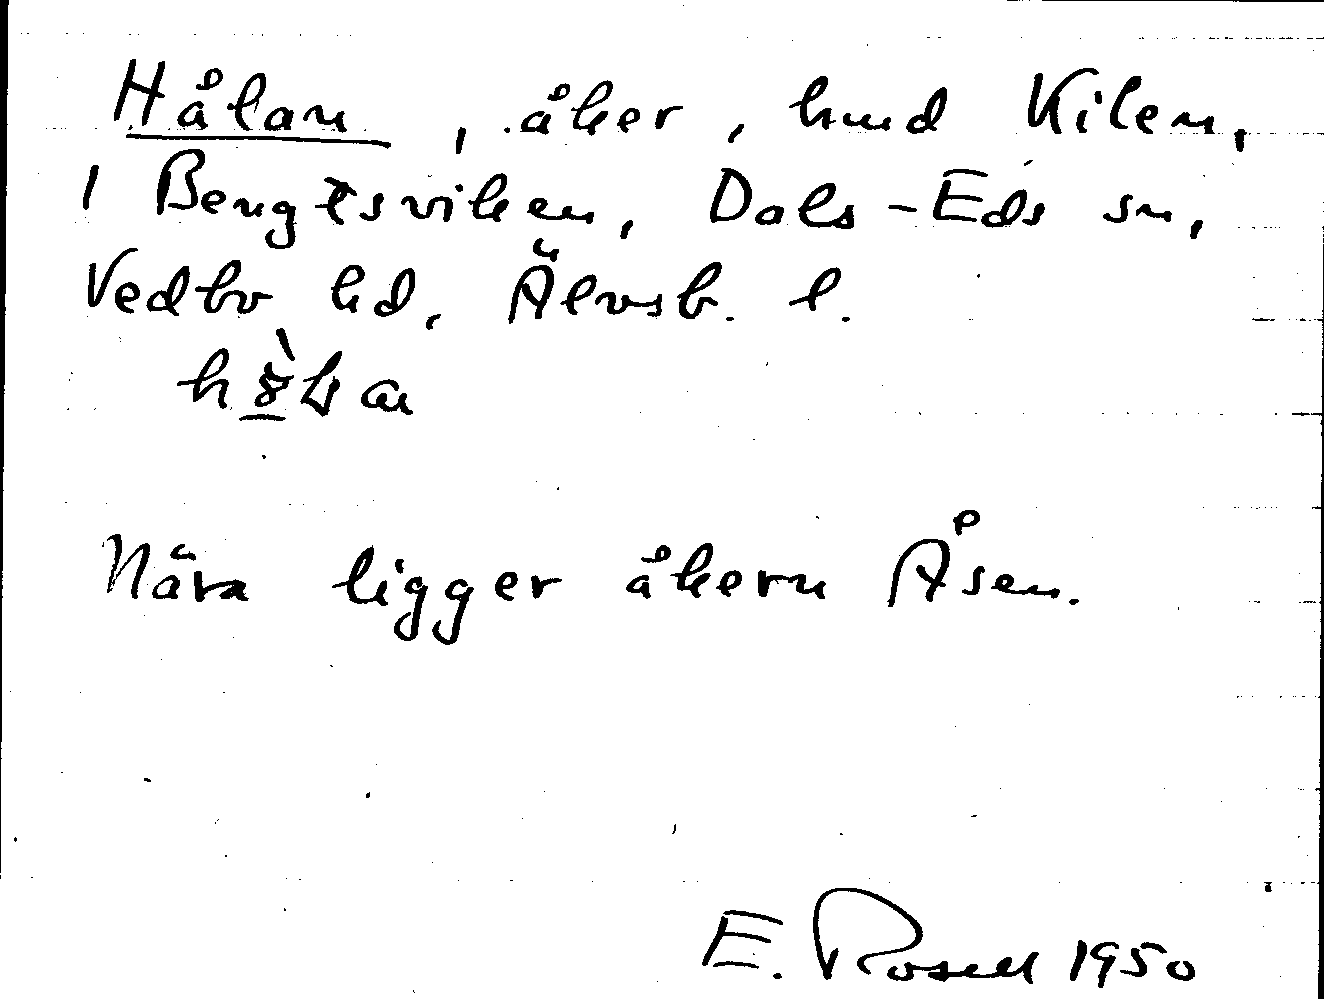 Hålan, åker, hmd Kilen,
1 Bengtsviken, Dals-Eds sn,
Vedbo hd, Älvsb. l.
Nära ligger åkern Åsen.
E. Rosell 1950